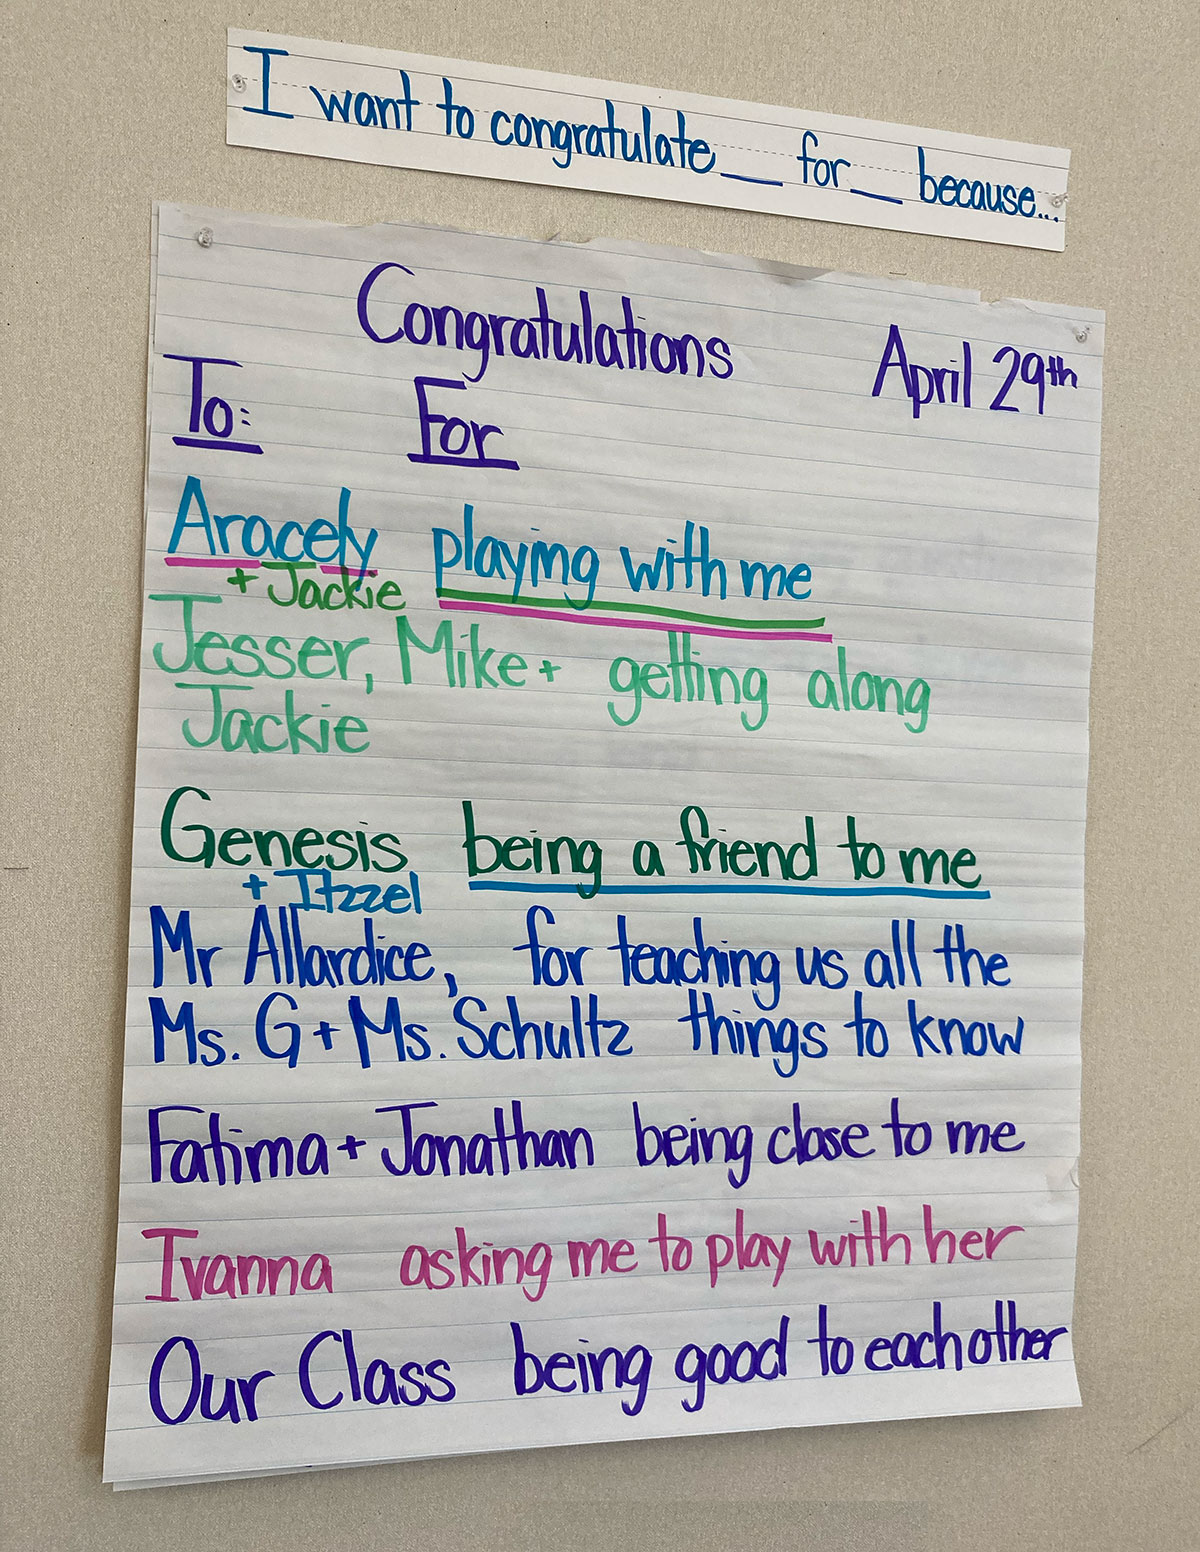 I want to congratulate __ for __ because...
Congratulations April 29th
To: For
Aracely playing with me
+ Jackie
Jesser, Mike + getting along
Jackie
Genesis being a friend to me
+ Itzzel
Mr Allardice, for teaching us all the
Ms. G + Ms. Schultz things to know
Fatima + Jonathan being close to me
Ivanna asking me to play with her
Our Class being good to each other